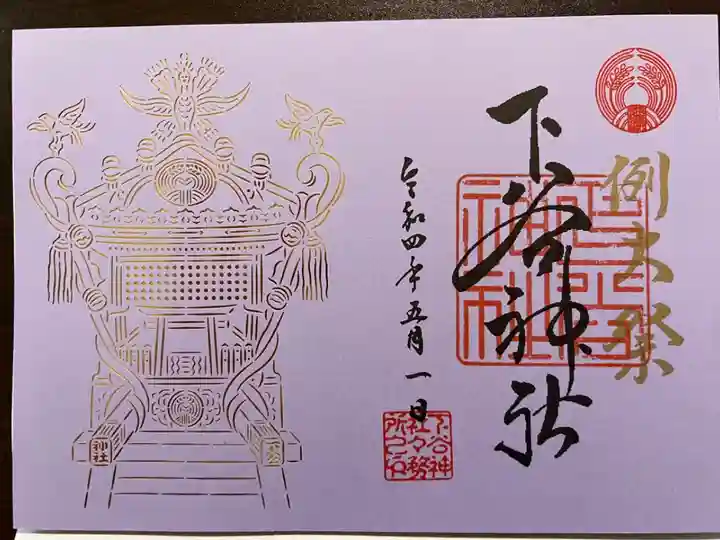 例大祭
下谷神社
下谷神社
令和四年五月一日
下谷神
社々務
所之印
神社
下谷